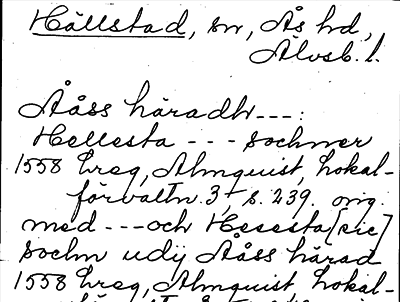 Hällstad, sn, Ås hd,
Älvsb. l.
Ååss häradh ---:
Hellesta --- sochner
1558 hreg, Almquist, Lokal-
förvaltn. 3, s. 239. orig.
med --- och Hesesta [sic]
sochn udij Ååss härad
1558 hreg, Almquist Lokal-